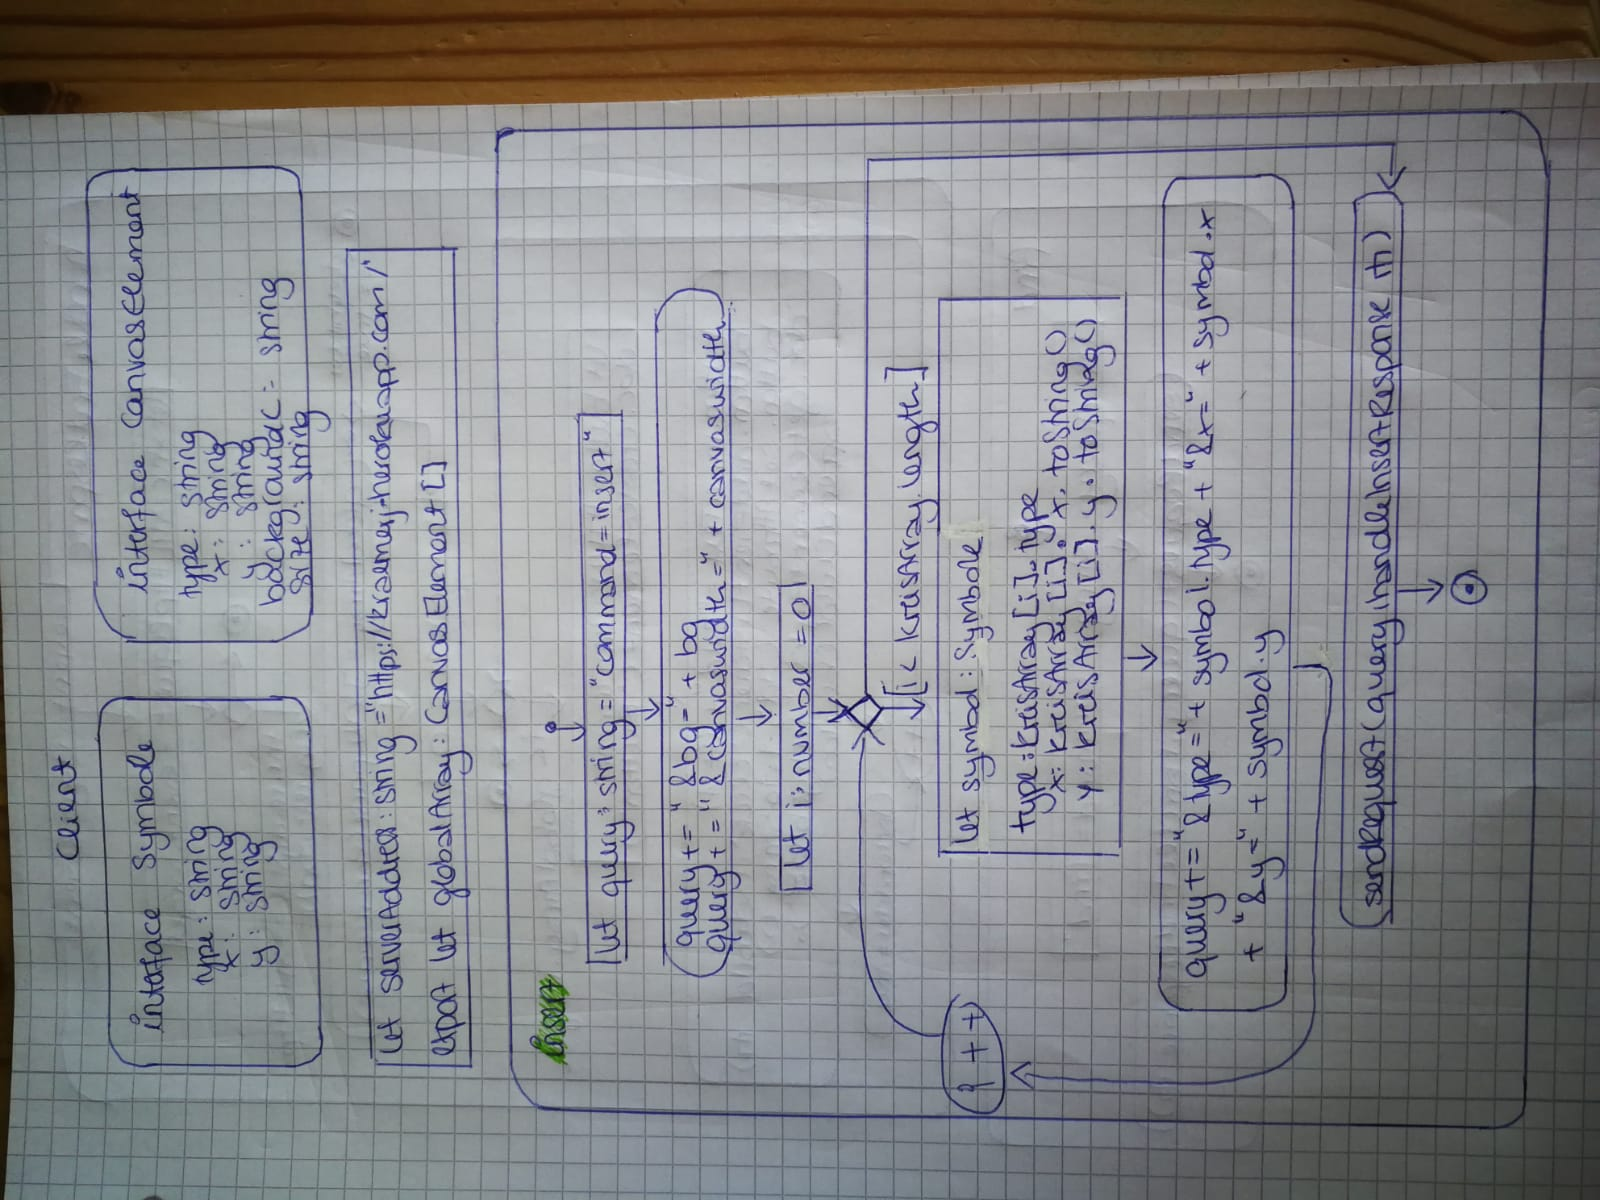 Client
interface Symbole
type: string
x: string
y: string
interface CanvasElement
type: string
x: string
y: string
backgroundC: string
size: string
let serverAddress: string = "https://kraemerj.herokuapp.com/"
export let globalArray: CanvasElement[]
Insert
let query: string = "command=insert"
query += "&bg=" + bg
query += "&canvaswidth=" + canvaswidth
let i: number = 0
[i < kreisArray.length]
let symbol: Symbole
type: kreisArray[i].type
x: kreisArray[i].x.toString()
y: kreisArray[i].y.toString()
query += "&type=" + symbol.type + "&x=" + symbol.x
+ "&y=" + symbol.y
i++
sendRequest(query, handleInsertResponse)